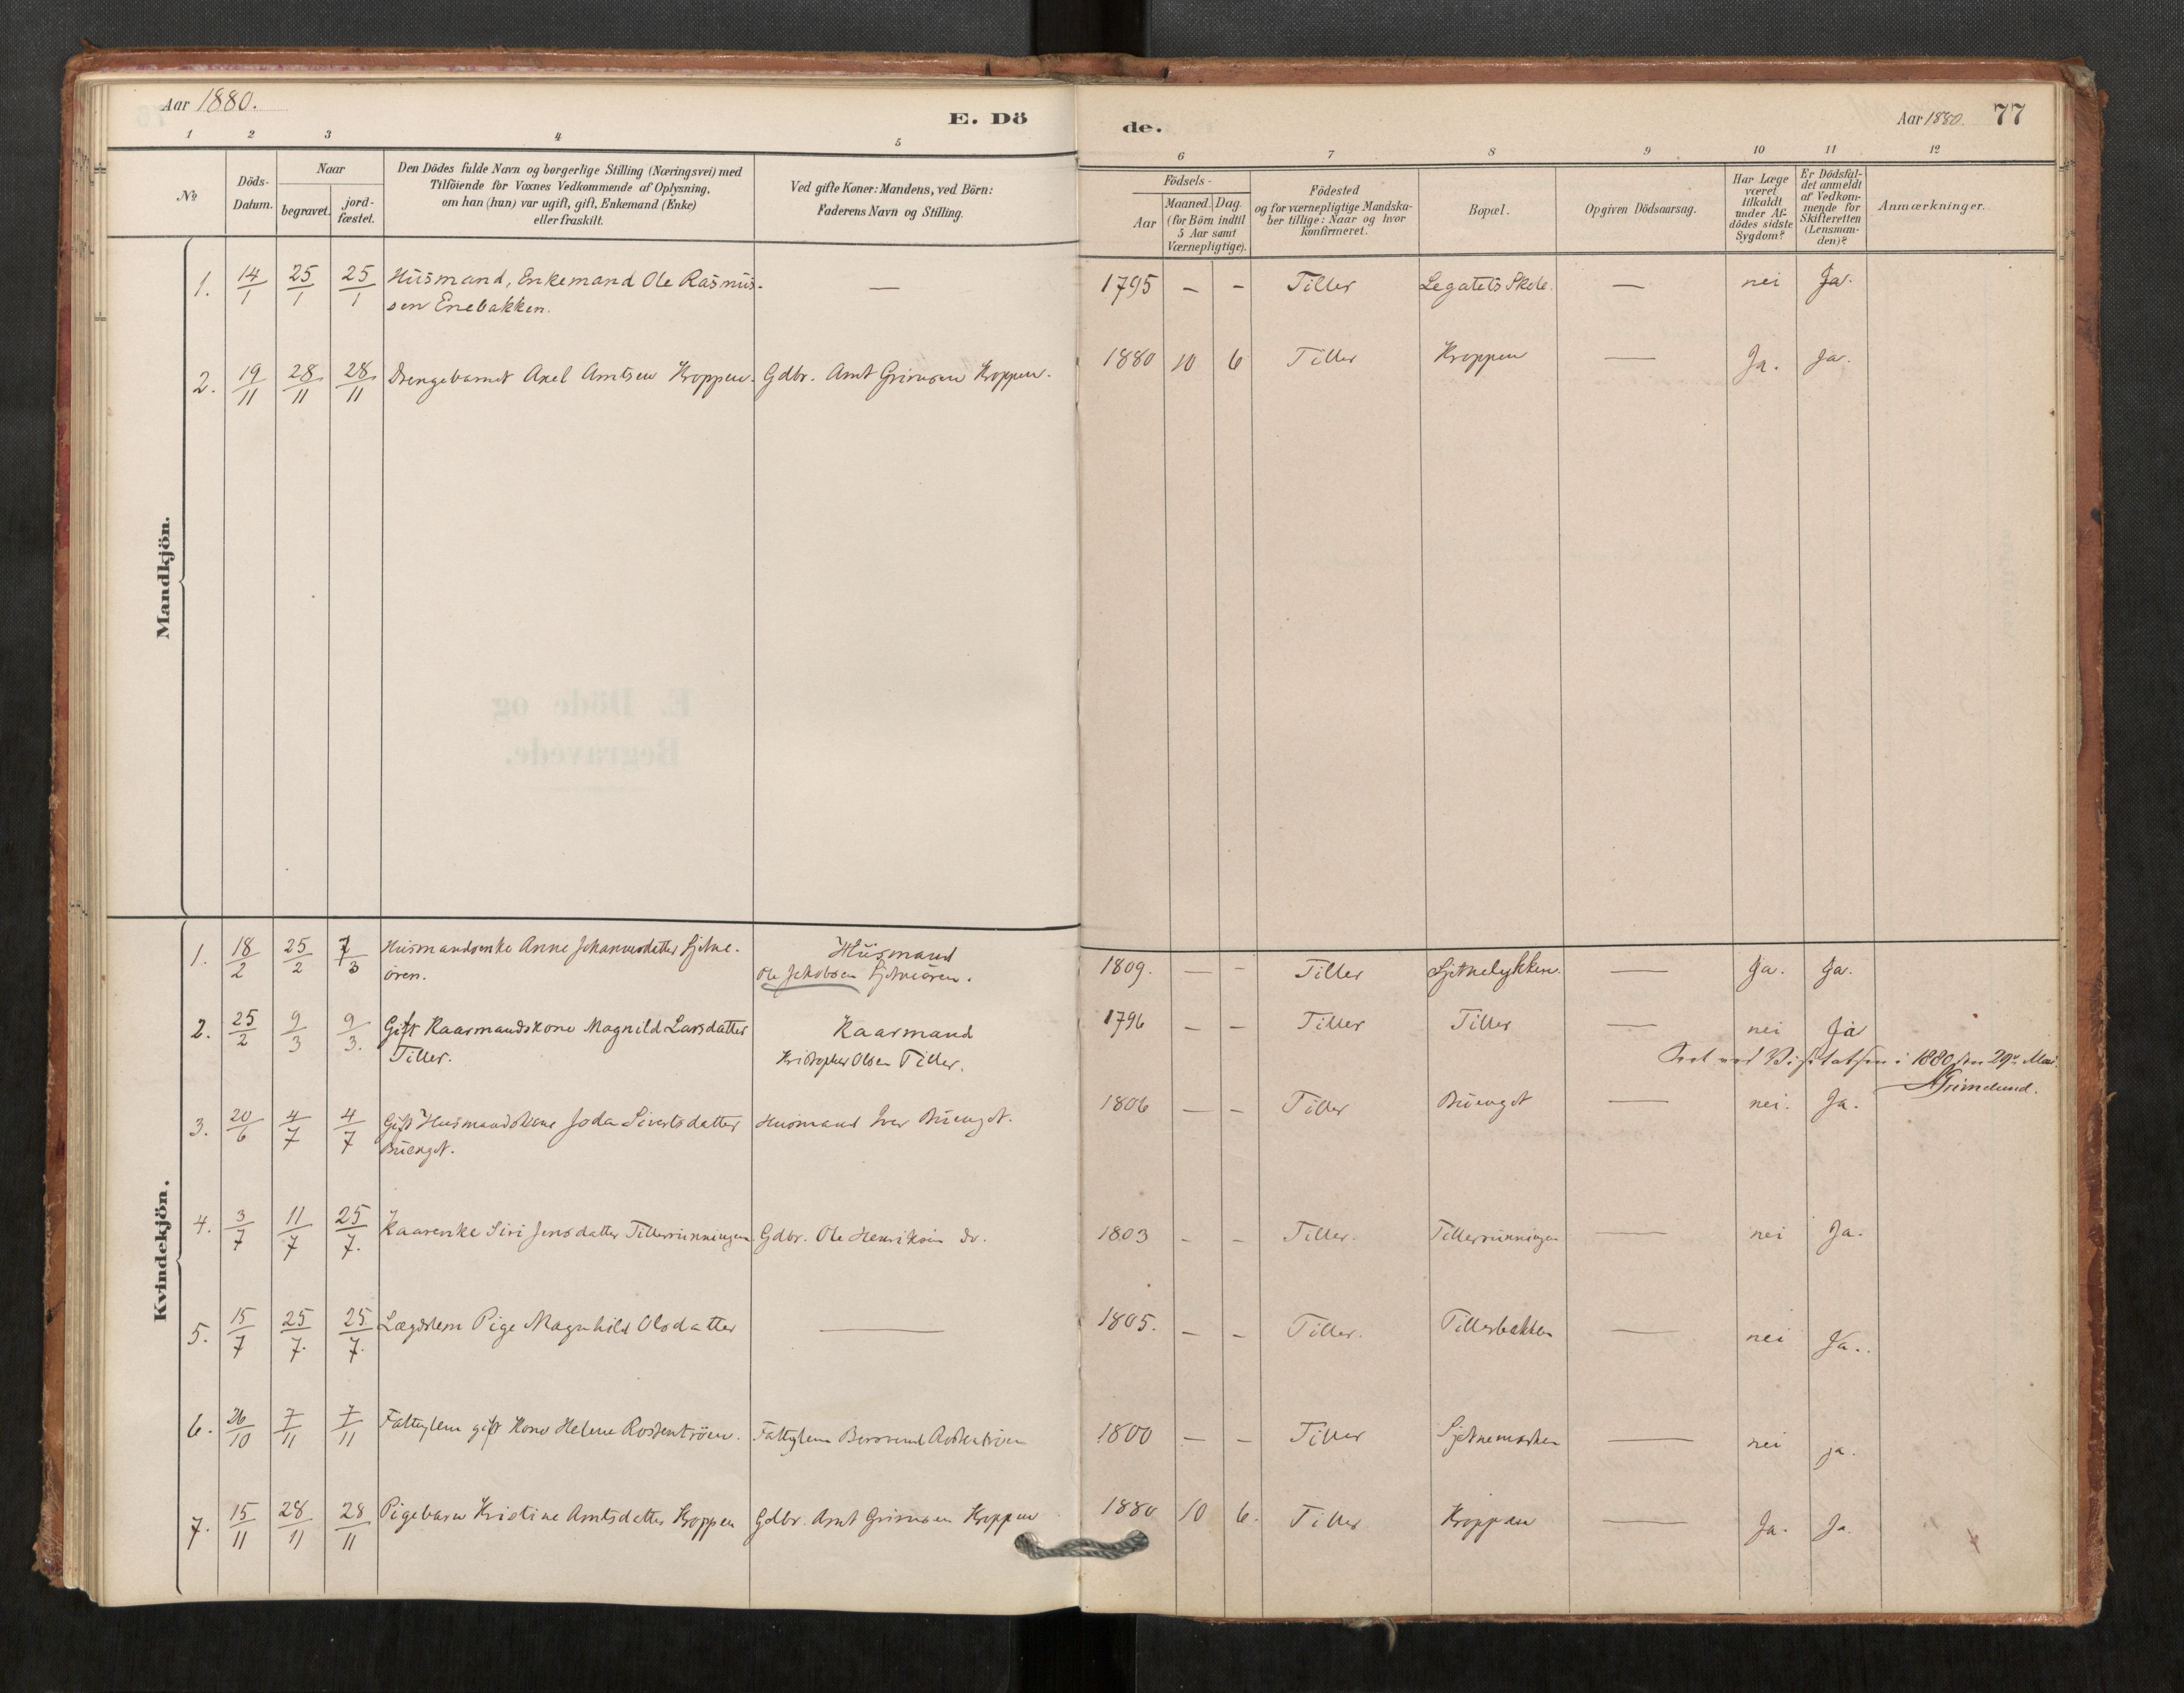 Aar 1880.
E. Dö
de.
Aar 1880.
77
1 2 3 4 5 6 7 8 9 10 11 12
No.
Döds-
Datum.
Naar
begravet.
jord-
fæstet.
Den Dödes fulde Navn og borgerlige Stilling (Næringsvei) med
Tilföiende for Voxnes Vedkommende af Oplysning,
om han (hun) var ugift, gift, Enkemand (Enke)
eller fraskilt.
Ved gifte Koner: Mandens, ved Börn:
Faderens Navn og Stilling.
Födsels-
Aar
Maaned. Dag.
(for Börn indtil
5 Aar samt
Værnepligtige).
Födested
og for værnepligtige Mandska-
ber tillige: Naar og hvor
konfirmeret.
Bopæl.
Opgiven Dödsaarsag.
Har Læge
været
tilkaldt
under Af-
dödes sidste
Sygdom?
Er Dödsfal-
det anmeldt
af Vedkom-
mende for
Skifteretten
(Lensman-
den)?
Anmærkninger.
Mandkjön.
1. 14/1 25/1 25/1 Husmand, Enkemand Ole Rasmus- — 1795 — — Tiller Legatets Skole. — nei Ja.
sen Enebakken.
2. 19/11 28/11 28/11 Drengebarnet Axel Arntsen Kroppen. Gdbr. Arnt Grimsen Kroppen. 1880 10 6 Tiller Kroppen — Ja. Ja.
E. Döde og
Begravede.
Kvindekjön.
1. 18/2 25/2 7/3 Husmandsenke Anne Johannesdatter Sjetne- Husmand 1809. — — Tiller Sjetnelykken. — Ja. Ja.
ören. Ole Jakobsen Sjetneören.
2. 25/2 9/3 9/3. Gift Kaarmandskone Magnild Larsdatter Kaarmand 1796 — — Tiller Tiller — nei Ja
Tiller. Kristopher Olsen Tiller.
i 1880 den 29de Mai.
Grimelund.
3. 20/6 4/7 4/7 Gift Husmandskone Sivertsdatter Husmand Iver Buenget. 1806 — — Tiller Buenget — nei. Ja.
Buenget.
4. 3/7 11/7 25/7. Kaarenke Siri Jensdatter Tillerrunningen Gdbr. Ole Henriksen do. 1803 — — Tiller. Tillerrunningen — nei Ja.
5. 15/7 25/7. 25/7. Lægdslem Pige Magnhild Olsdatter — 1805. — — Tiller. Tillerbakken — nei Ja.
6. 26/10 7/11 7/11 Fattiglem gift Kone Helene Rostentröen. Fattiglem 1800 — — Tiller Sjetnemarken — nei ja.
7. 15/11 28/11 28/11 Pigebarn Kristine Arntsdatter Kroppen Gdbr. Arnt Grimsen Kroppen 1880 10 6. Tiller Kroppen — Ja. Ja.